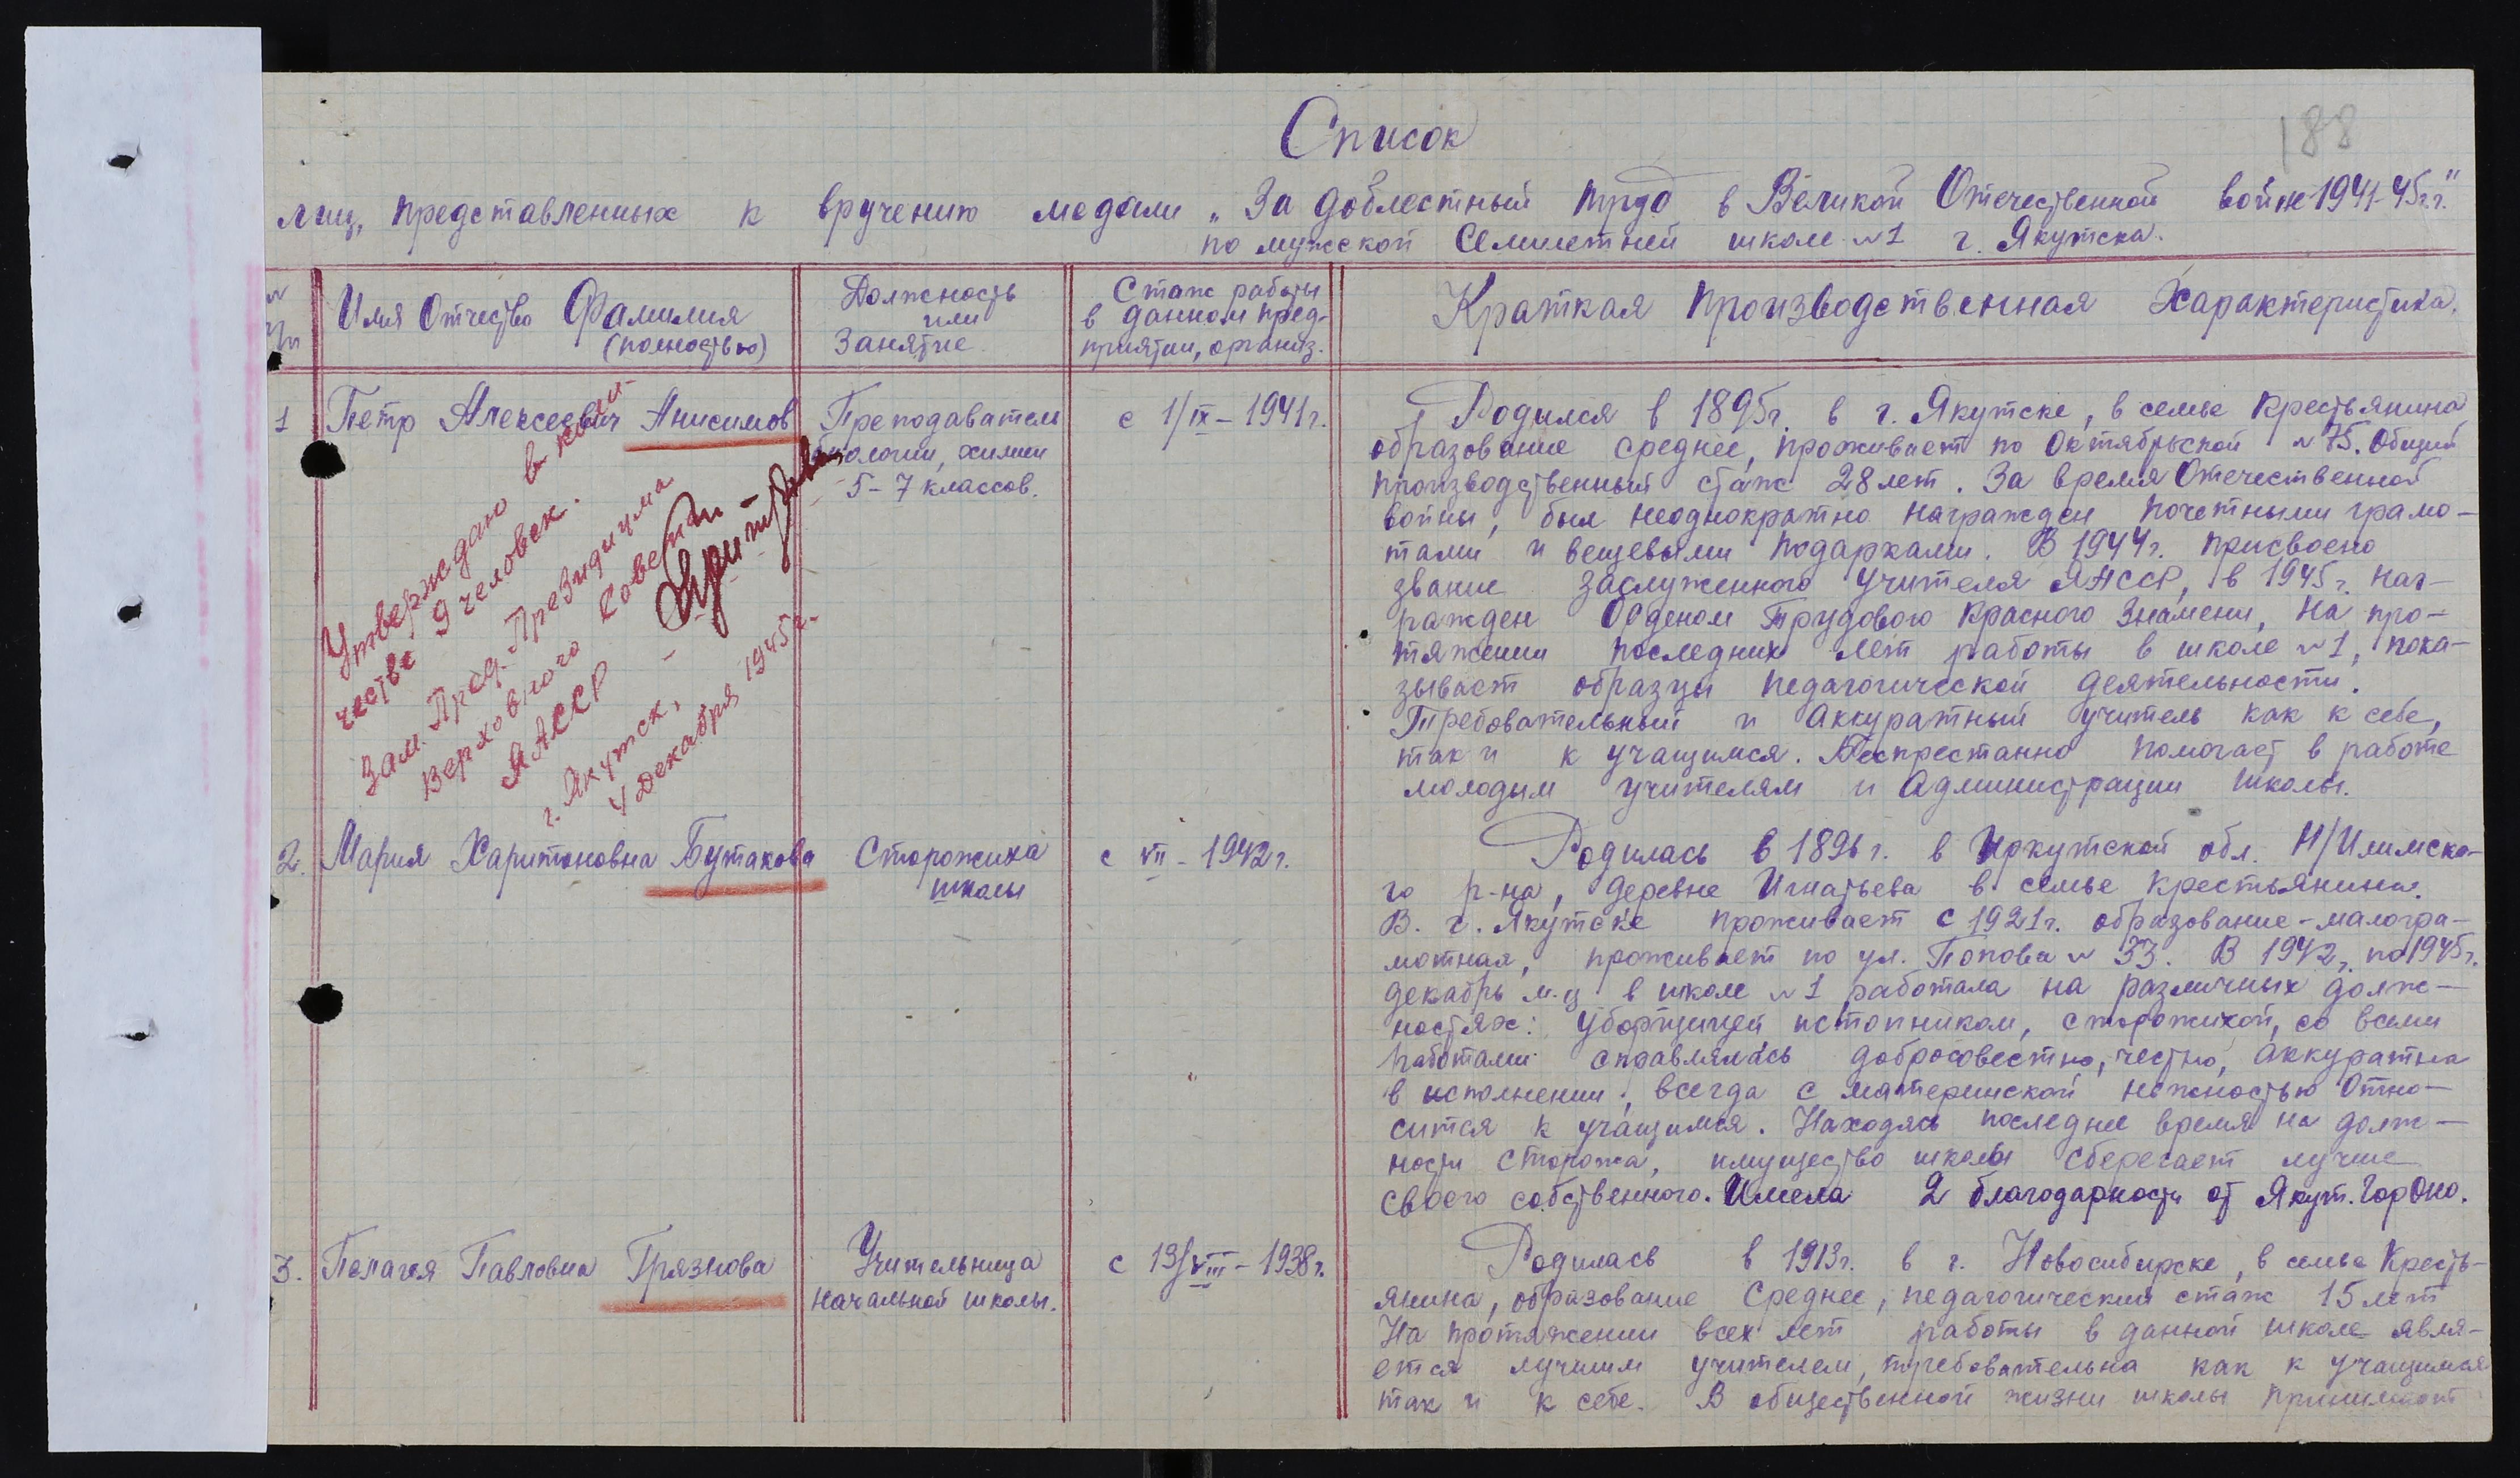 188
Список
лиц, представленных к вручению медали „За доблестный труд в Великой Отечественной войне 1941-45гг."
по мужской семилетней школе №1 г. Якутска.
№
п/п
Имя Отчество Фамилия
(полностью)
Должность
или
Занятие
Стаж работы
в данном пред-
приятии, организ.
Краткая производственная характеристика.
1
Петр Алексеевич Анисимов
Преподаватель
биологии, химии
5-7 классов.
с 1/IX - 1941г.
Родился в 1895г. в г. Якутске, в семье крестьянина
образование среднее, проживает по Октябрьской №75. Общий
производственный стаж 28 лет. За время Отечественной
войны, был неоднократно награжден почетными грамо-
тами и вещевыми подарками. В 1944г. присвоено
звание заслуженного учителя ЯАССР, в 1945г. наг-
ражден Орденом Трудового Красного Знамени, на про-
тяжении последних лет работы в школе №1, пока-
зывает образцы педагогической деятельности.
Требовательный и аккуратный учитель как к себе,
так и к учащимся. Беспрестанно помогает в работе
молодым учителям и администрации школы.
Утверждаю в коли-
честве 9 человек.
Зам. Пред. Президиума
Верховного Совета
ЯАССР -
г. Якутск,
4 декабря 1945г.
2.
Мария Харитоновна Бутакова
Сторожиха
школы
с VII - 1942г.
Родилась в 1896г. в Иркутской обл. Н/Илимско-
го р-на, деревне Игнатьева в семье крестьянина.
В. г. Якутске проживает с 1921г. образование - малогра-
мотная, проживает по ул. Попова № 33. В 1942г. по 1945г.
декабрь м-ц в школе №1 работала на различных долж-
ностях: уборщицей истопником, сторожихой, со всеми
работами справлялась добросовестно, честно, аккуратна
в исполнении, всегда с материнской нежностью отно-
сится к учащимся. Находясь последнее время на долж-
ности сторожа, имущество школы сберегает лучше
своего собственного. Имела 2 благодарности от Якут. ГорОно.
3.
Пелагея Павловна Грязнова
Учительница
начальной школы.
с 13/VIII - 1938г.
Родилась в 1913г. в г. Новосибирске, в семье кресть-
янина, образование среднее, педагогический стаж 15 лет
На протяжении всех лет работы в данной школе явля-
ется лучшим учителем, требовательна как к учащимся
так и к себе. В общественной жизни школы принимает